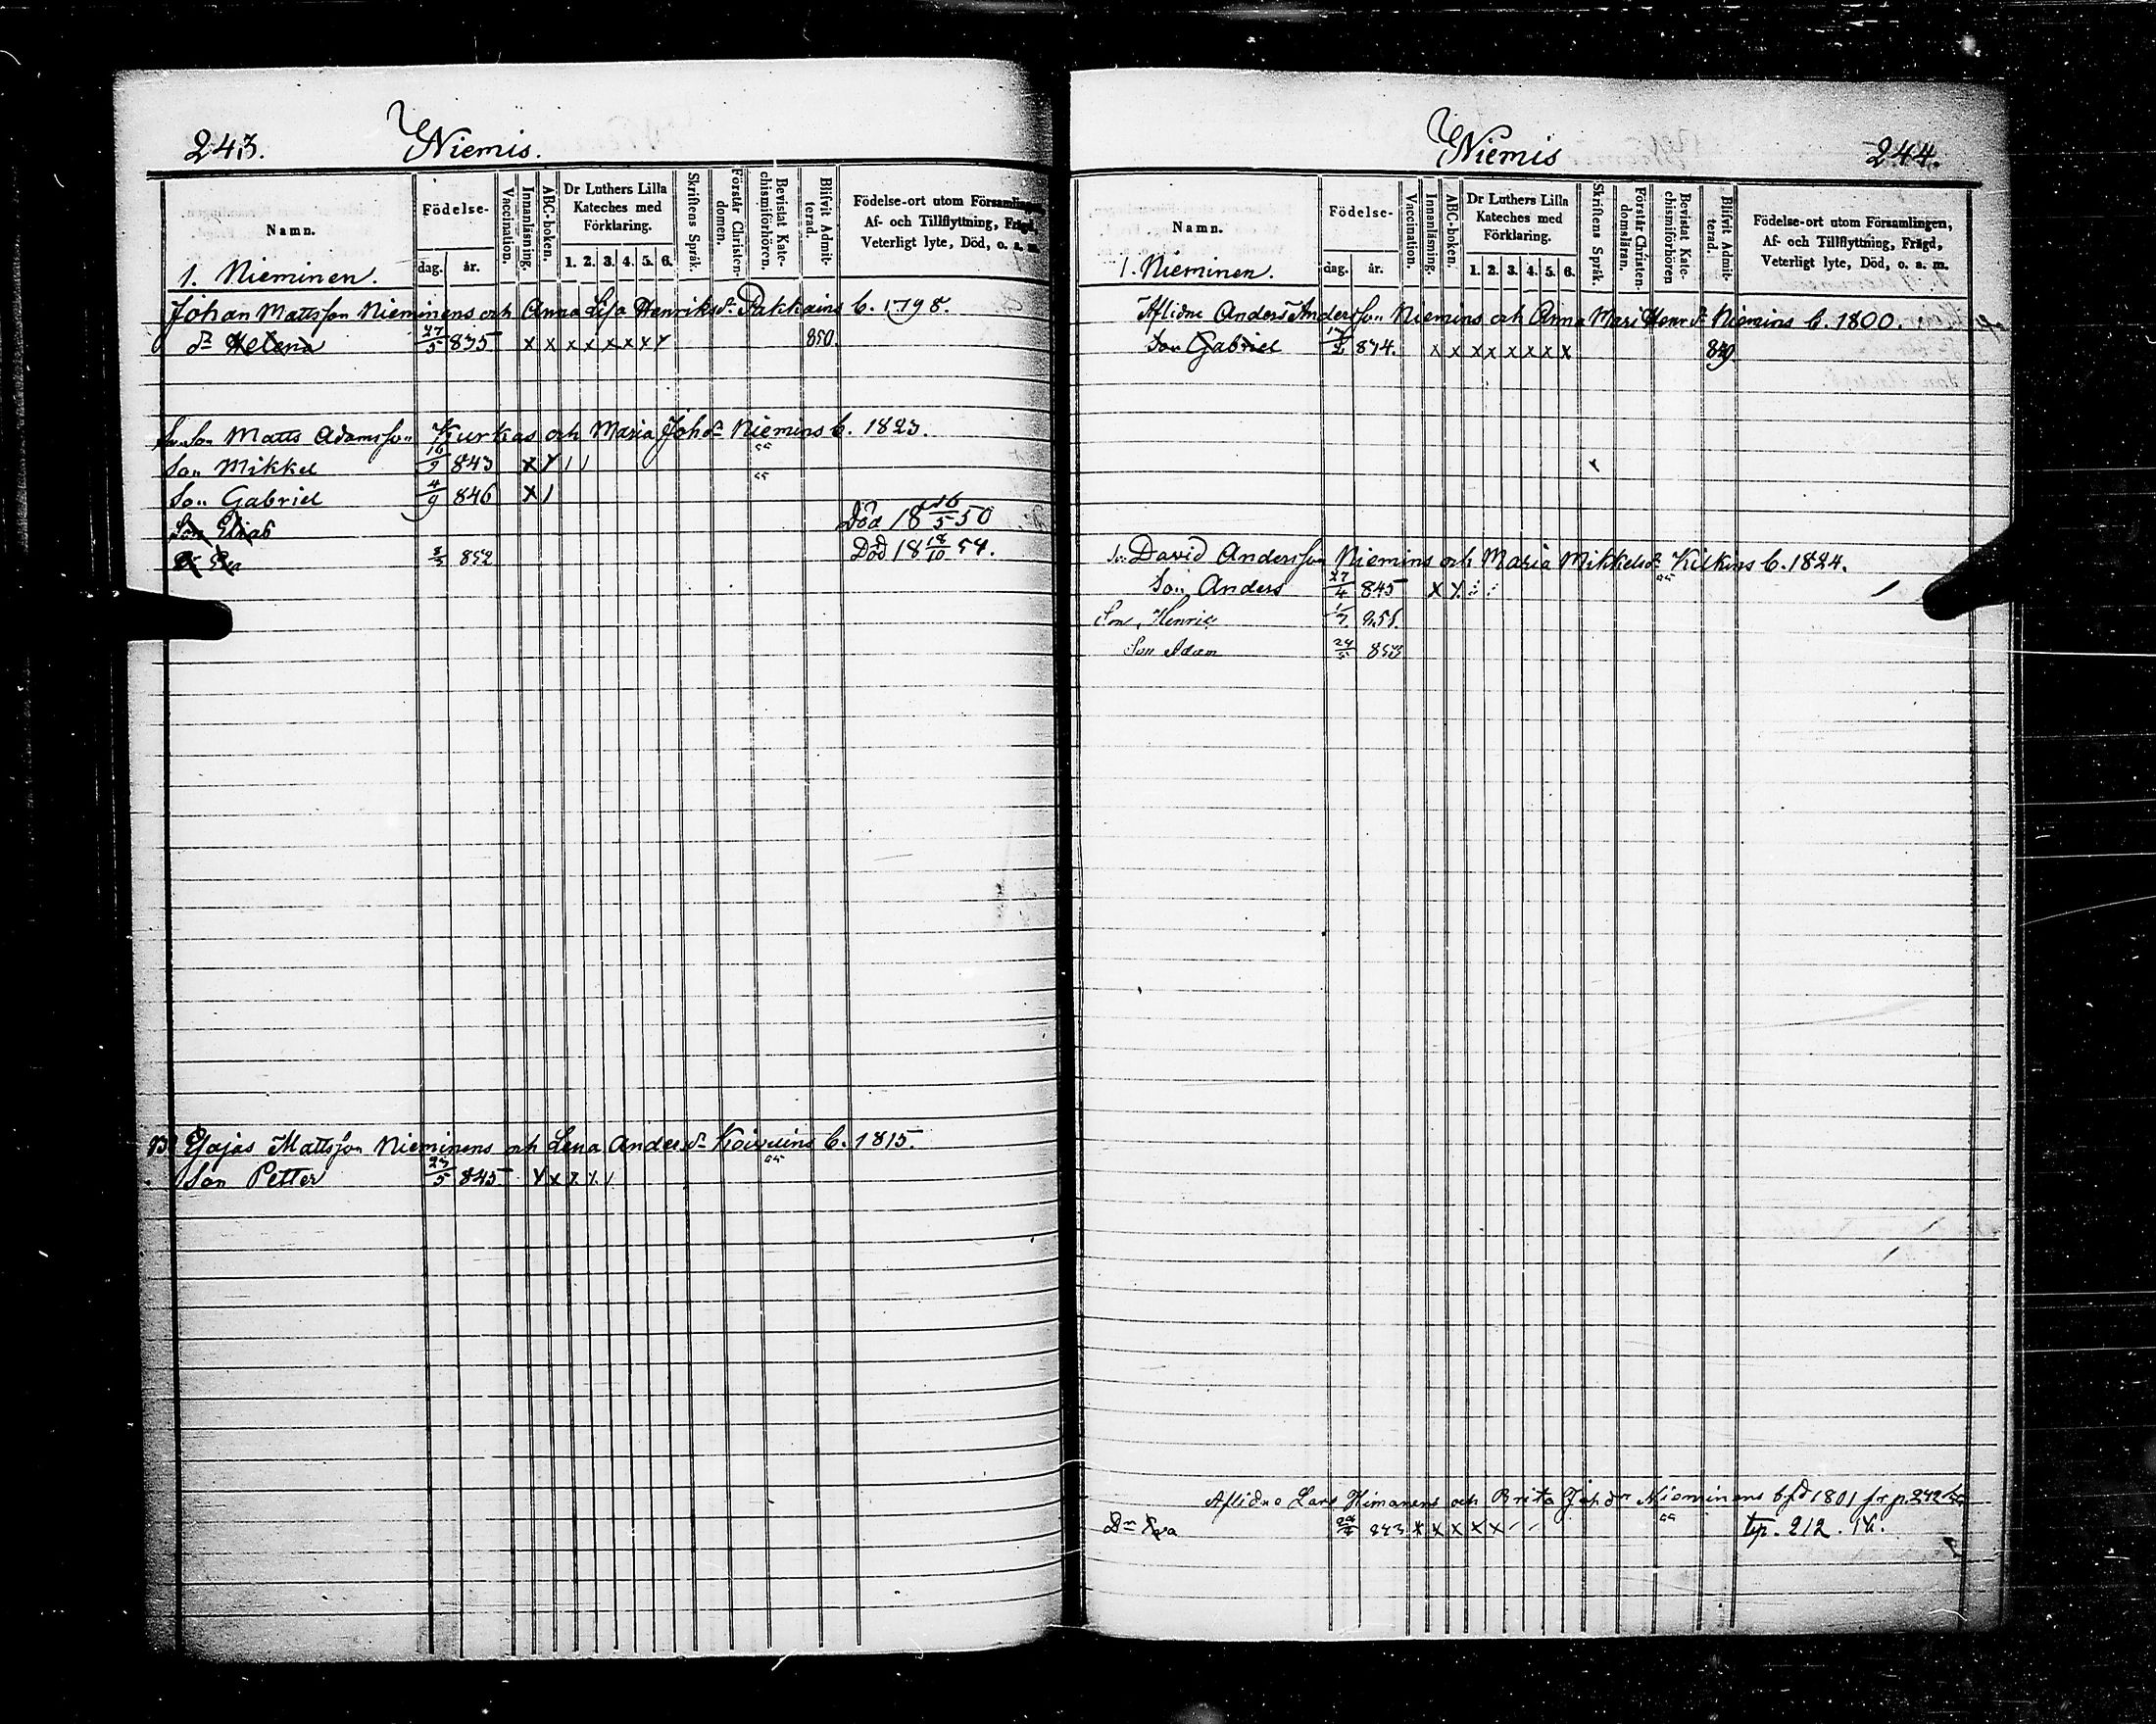 243. Niemis.
Namn.
Födelse-
dag. år.
Vaccination.
Innanläsning.
ABC-boken.
Dr Luthers Lilla Kateches med Förklaring.
1. 2. 3. 4. 5. 6.
Skriftens Språk.
Förstår Christendomen.
Bevistat Katechismiförhören.
Blifvit Admitterad.
Födelse-ort utom Församlingen,
Af- och Tillflyttning, Frägd,
Veterligt lyte, Död, o. s. m.
1. Nieminen.
Johan Mattsson Nieminens och Anna Lisa Henriksdr Pakkains b. 1798.
dr Helena 27/5 835 x x x x x x x x 850.
Matts Adamsson Kurkas och Maria Johdr Niemins b. 1823.
Son Mikkel 16/9 843 x
Son Gabriel 4/9 846 x
Son Elias Död 18 16/5 50
Dr Eva 3/3 852 Död 18 18/10 54.
Esajas Mattsson Nieminens och Lena Andersdr Koivuins b. 1815.
Son Petter 23/5 845
Niemis 244.
Namn.
Födelse-
dag. år.
Vaccination.
Innanläsning.
ABC-boken.
Dr Luthers Lilla Kateches med Förklaring.
1. 2. 3. 4. 5. 6.
Skriftens Språk.
Förstår Christendomsläran.
Bevistat Katechismiförhören
Blifvit Admitterad.
Födelse-ort utom Församlingen,
Af- och Tillflyttning, Frägd,
Veterligt lyte, Död, o. s. m.
1. Nieminen.
Aflidne Anders Andersson Niemins och Anna Mari Henrdr Niemins b. 1800.
Son Gabriel 17/2 834. x x x x x x x x 849
David Andersson Niemins och Maria Mikkelsdr Kilkins b. 1824.
Son Anders 27/4 845 x
Son Henric 1/7
Son Adam 24/5 853
Aflidne Lars Himanens och Brita Johdr Nieminens 1801 fr p. 242
Dr Eva 843 x x x x x
tp. 212.